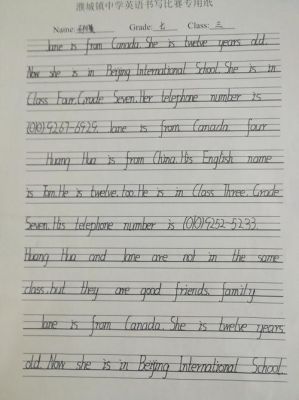 濮城镇中学英语书写比赛专用纸
Name: Grade: 七 Class: 三
Jane is from Canada. She is twelve years old.
Now she is in Beijing International School. She is in
Class Four. Grade Seven. Her telephone number is
(010)9267-6929. Jane is from Canada. four
Huang Hua is from China. His English name
is Tom. He is twelve, too. He is in Class Three. Grade
Seven. His telephone number is (010)9252-5233.
Huang Hua and Jane are not in the same
class, but they are good friends. family
Jane is from Canada. She is twelve years
old. Now she is in Beijing International School.